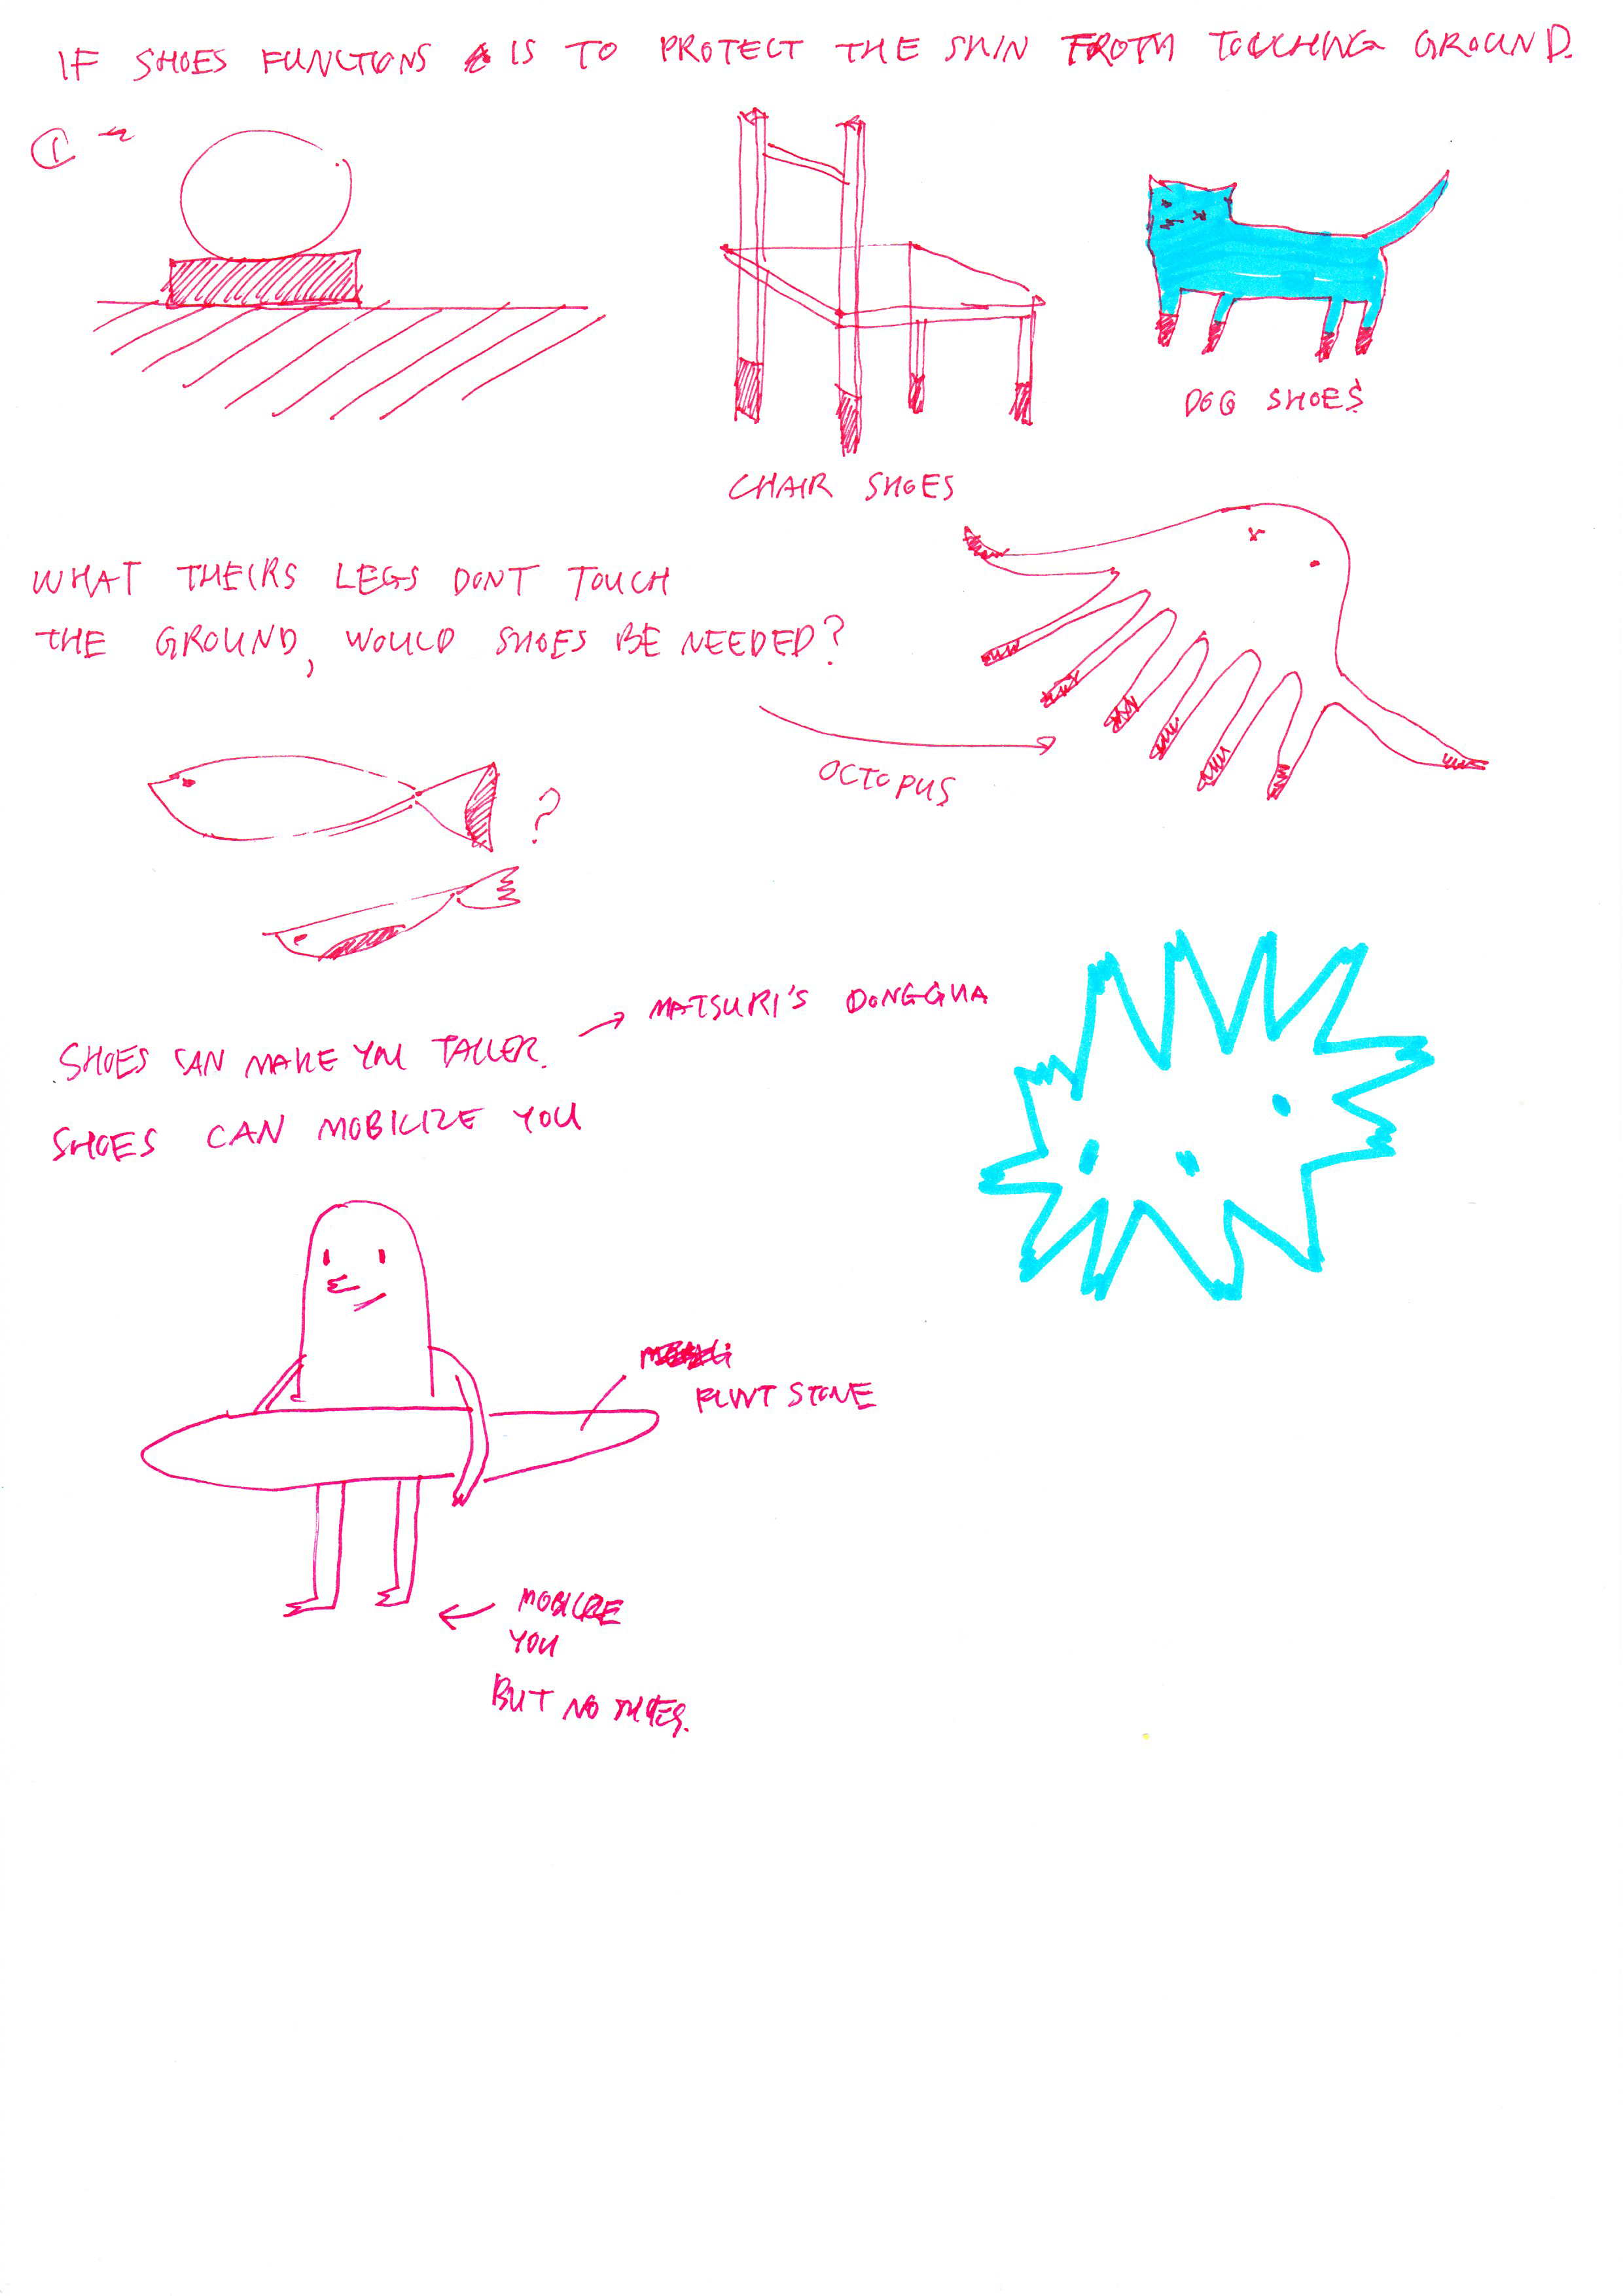 IF SHOES FUNCTIONS IS TO PROTECT THE SKIN FROM TOUCHING GROUND.
1
CHAIR SHOES
DOG SHOES
WHAT THEIRS LEGS DONT TOUCH
THE GROUND, WOULD SHOES BE NEEDED?
OCTOPUS
?
SHOES CAN MAKE YOU TALLER.
MATSURI'S DONGGUA
SHOES CAN MOBILIZE YOU
FLINT STONE
MOBILIZE
YOU
BUT NO SHOES.